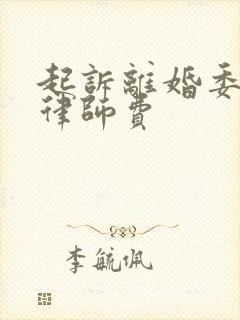 起訴離婚委
律師費
李毓佩